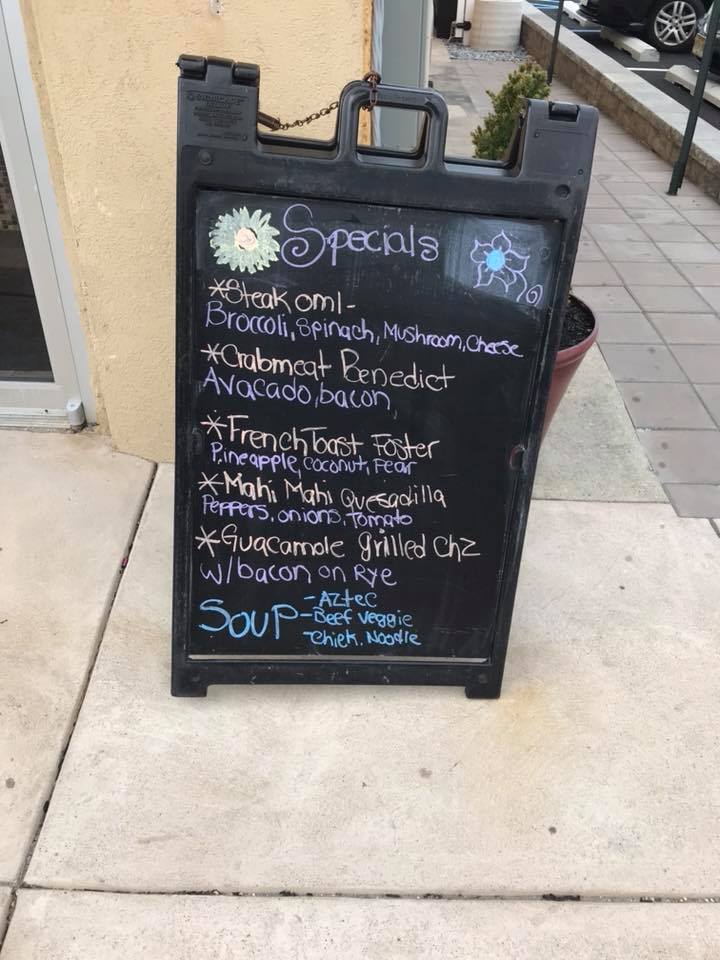 Specials
*Steak oml-
Broccoli, Spinach, Mushroom, Cheese
*Crabmeat Benedict
Avacado, bacon,
*French Toast Foster
Pineapple, coconut, Fear
*Mahi Mahi Quesadilla
Peppers, onions, Tomato
*Guacamole grilled chz
w/bacon on Rye
Soup -Aztec
-Beef veggie
-Chick. Noodle